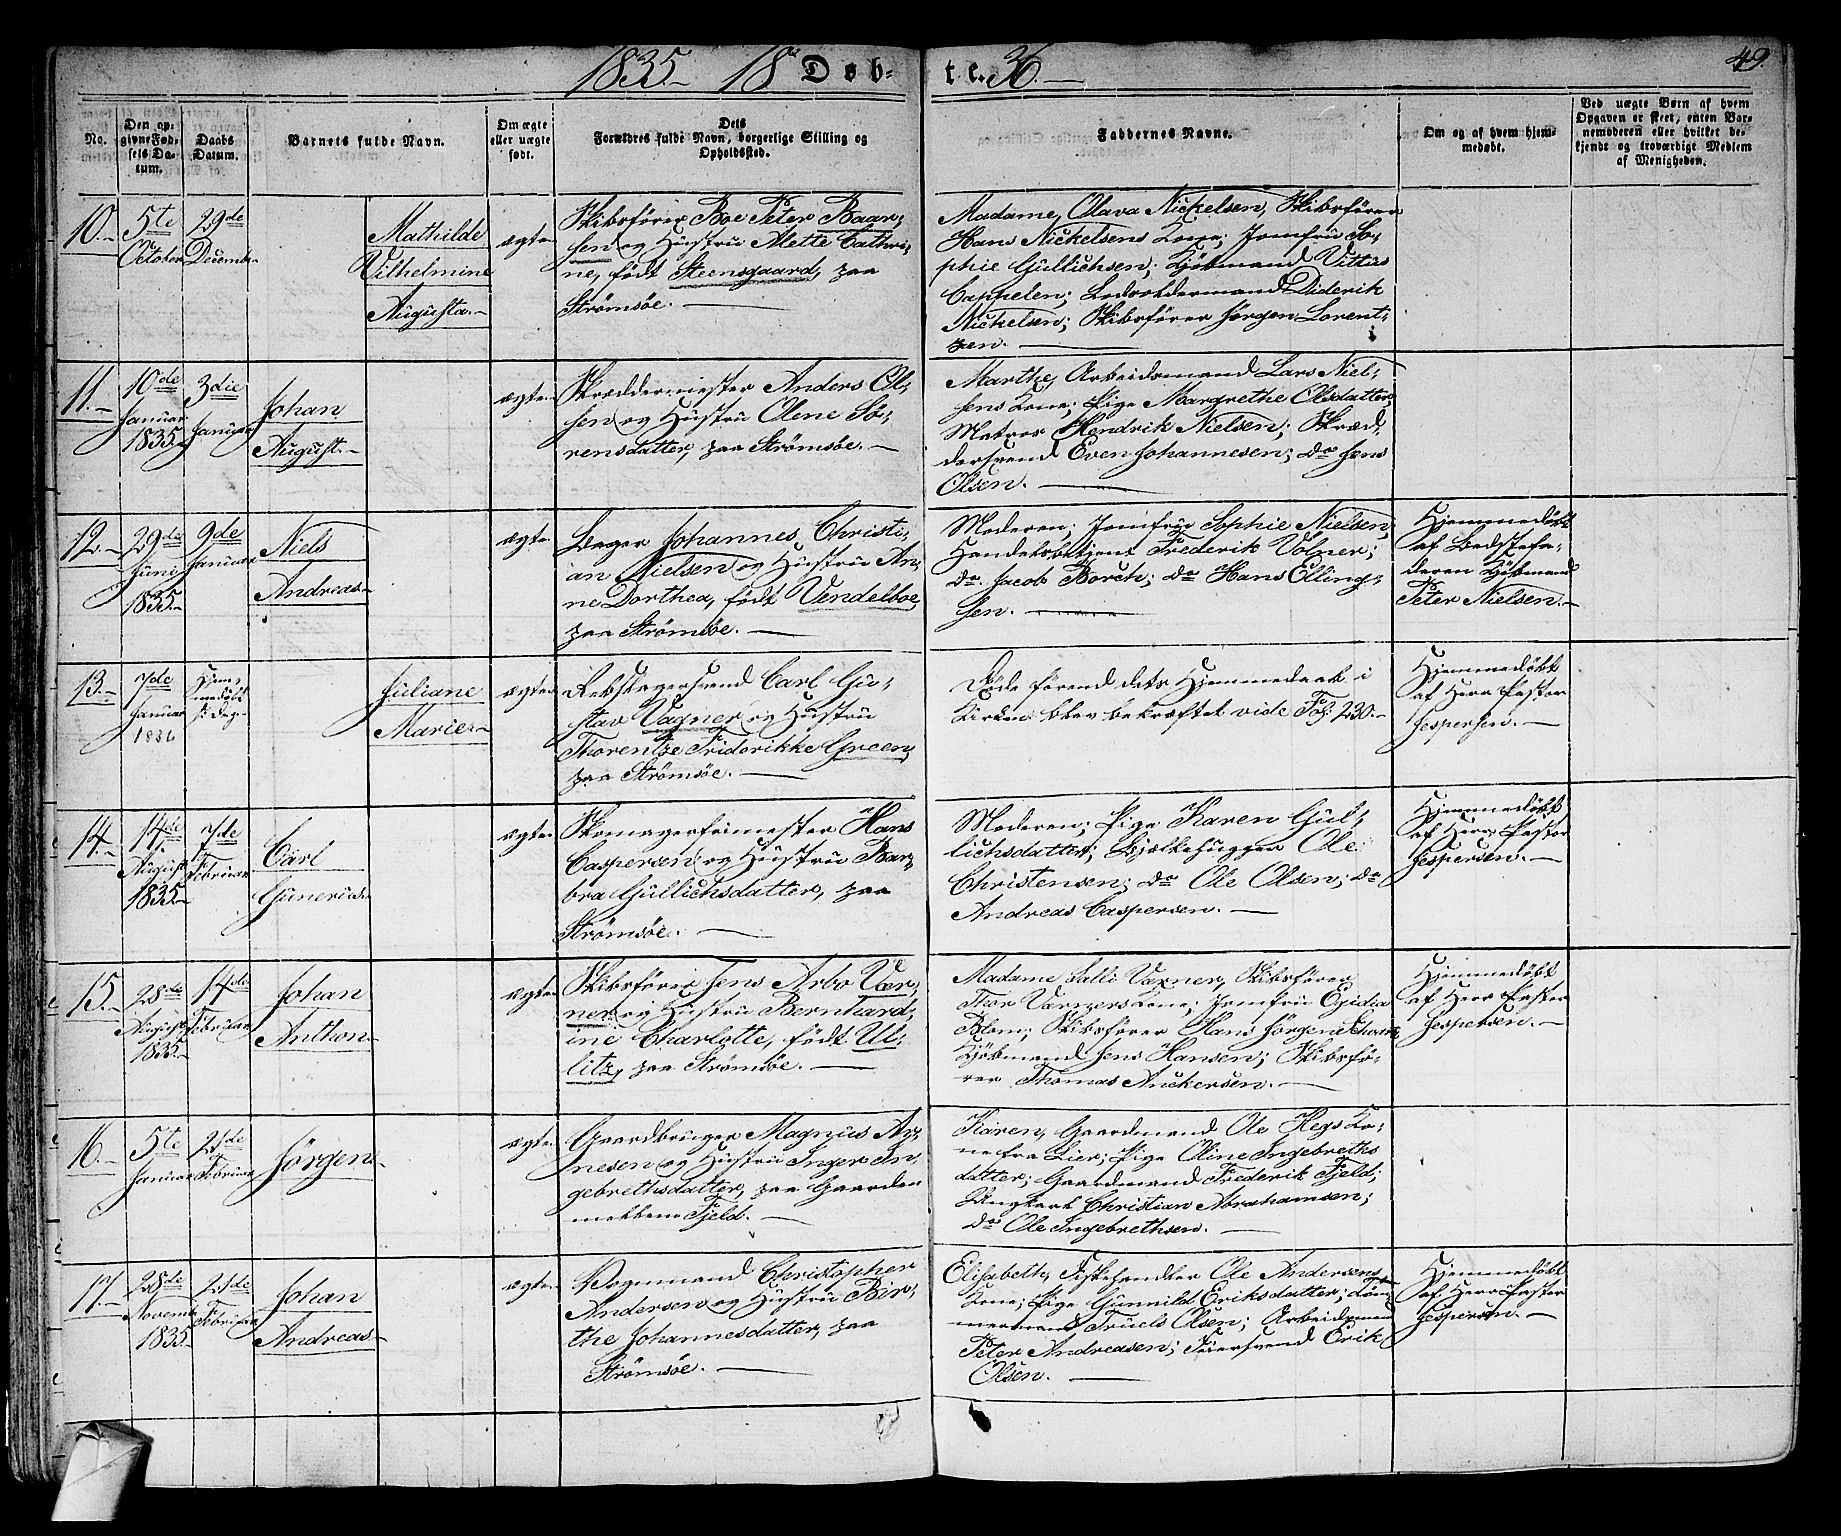 1835 18 Døb-
te. 36.
49.
No.
Den op-
givne Fød-
sels Da-
tum.
Daabs
Datum.
Barnets fulde Navn.
Om ægte
eller uægte
født.
Dets
Forældres fulde Navn, borgerlige Stilling og
Opholdssted.
Faddernes Navne.
Om og af hvem hjem-
medøbt.
Ved uægte Børn af hvem
Opgaven er skeet, enten Bar-
nemoderen eller hvilket be-
kjendt og troværdigt Medlem
af Menigheden.
10.
5te
October
29de
Decemb.
Mathilde
Vilhelmine
Augusta.
ægte
Skibsfører Boe Peter Baar-
sen og Hustru Alette Cathri-
ne, født Steensgaard, paa
Strømsøe.
Madame, Olava Nickelsen, Skibsfører
Hans Nickelsens Kone; Jomfru So-
phie Gullichsen; Kjøbmand Vittus
Cappelen; Lodsoldermand Diderik
Nickelsen; Skibsfører Jørgen Lorent-
zen.
11.
10de
Januar
1835
3die
Januar
Johan
August.
ægte
Skræddermester Anders Ol-
sen og Hustru Olene Sø-
rensdatter, paa Strømsøe.
Marthe, Arbeidsmand Lars Niel-
sens Kone; Pige Margrethe Olsdatter;
Matros Hendrik Nielsen; Skræd-
dersvend Even Johannesen; do Jens
Olsen.
12.
29de
Juni
1835
9de
Januar
Niels
Andreas
ægte
Bager Johannes Christi-
an Nielsen og Hustru An-
ne Dorthea, født Vendelboe,
paa Strømsøe.
Moderen; Jomfru Sophie Nielsen;
Handelsbetjent Frederik Volner;
do Jacob Borch; do Hans Elling-
sen.
Hjemmedøbt
af Bedstefa-
deren Kjøbmand
Peter Nielsen.
13.
7de
Januar
1836
Hjem-
medøbt
s. Dag
Juliane
Marie
ægte
Rebslagersvend Carl Gu-
stav Vagner og Hustru
Thorentze Friderikke Green,
paa Strømsøe.
Døde førend dets Hjemmedaab i
Kirken blev bekræftet vide Fol: 230.
Hjemmedøbt
af Herr Pastor
Jespersen.
14.
14de
August
1835
7de
Februar
Carl
Gunerius
ægte
Skomagerfrimester Hans
Caspersen og Hustru Bar-
bra Gullichsdatter, paa
Strømsøe.
Moderen; Pige Karen Gul-
lichsdatter; Bjelkehugger Ole
Christensen; do Ole Olsen; do
Andreas Caspersen.
Hjemmedøbt
af Herr Pastor
Jespersen.
15.
28de
August
1835
14de
Februar
Johan
Anthon
ægte
Skibsfører Jens Arbo Vær-
ner og Hustru Bernhard-
ine Charlotte, født Ul-
litz, paa Strømsøe.
Madame Salli Værner, Skibsfører
Thor Værners Kone; Jomfru Egidia
Blom; Skibsfører Hans Jørgen
Kjøbmand Jens Hansen; Skibsfø-
rer Thomas Anckersen.
Hjemmedøbt
af Herr Pastor
Jespersen.
16.
5te
Januar
21de
Februar
Jørgen
ægte
Gaardbruger Magnus Ar-
nesen og Hustru Inger In-
gebrethsdatter, paa Gaarden
mellem Fjeld.
Karen, Gaardmand Ole Hegs Ko-
ne fra Lier; Pige Oline Ingebreths
datter; Gaardmand Frederik Fjeld;
Ungkarl Christian Abrahamsen;
do Ole Ingebrethsen.
17.
28de
Novemb.
1835
21de
Februar
Johan
Andreas
ægte
Vognmand Christopher
Andersen og Hustru Bir-
the Johannesdatter, paa
Strømsøe.
Elisabeth, Fiskehandler Ole Andersens
Kone; Pige Gunnild Eriksdatter; Tøm-
mermand Truels Olsen; Arbeidsmand
Peter Andreasen; Feiersvend Erik
Olsen.
Hjemmedøbt
af Herr Pastor
Jespersen.